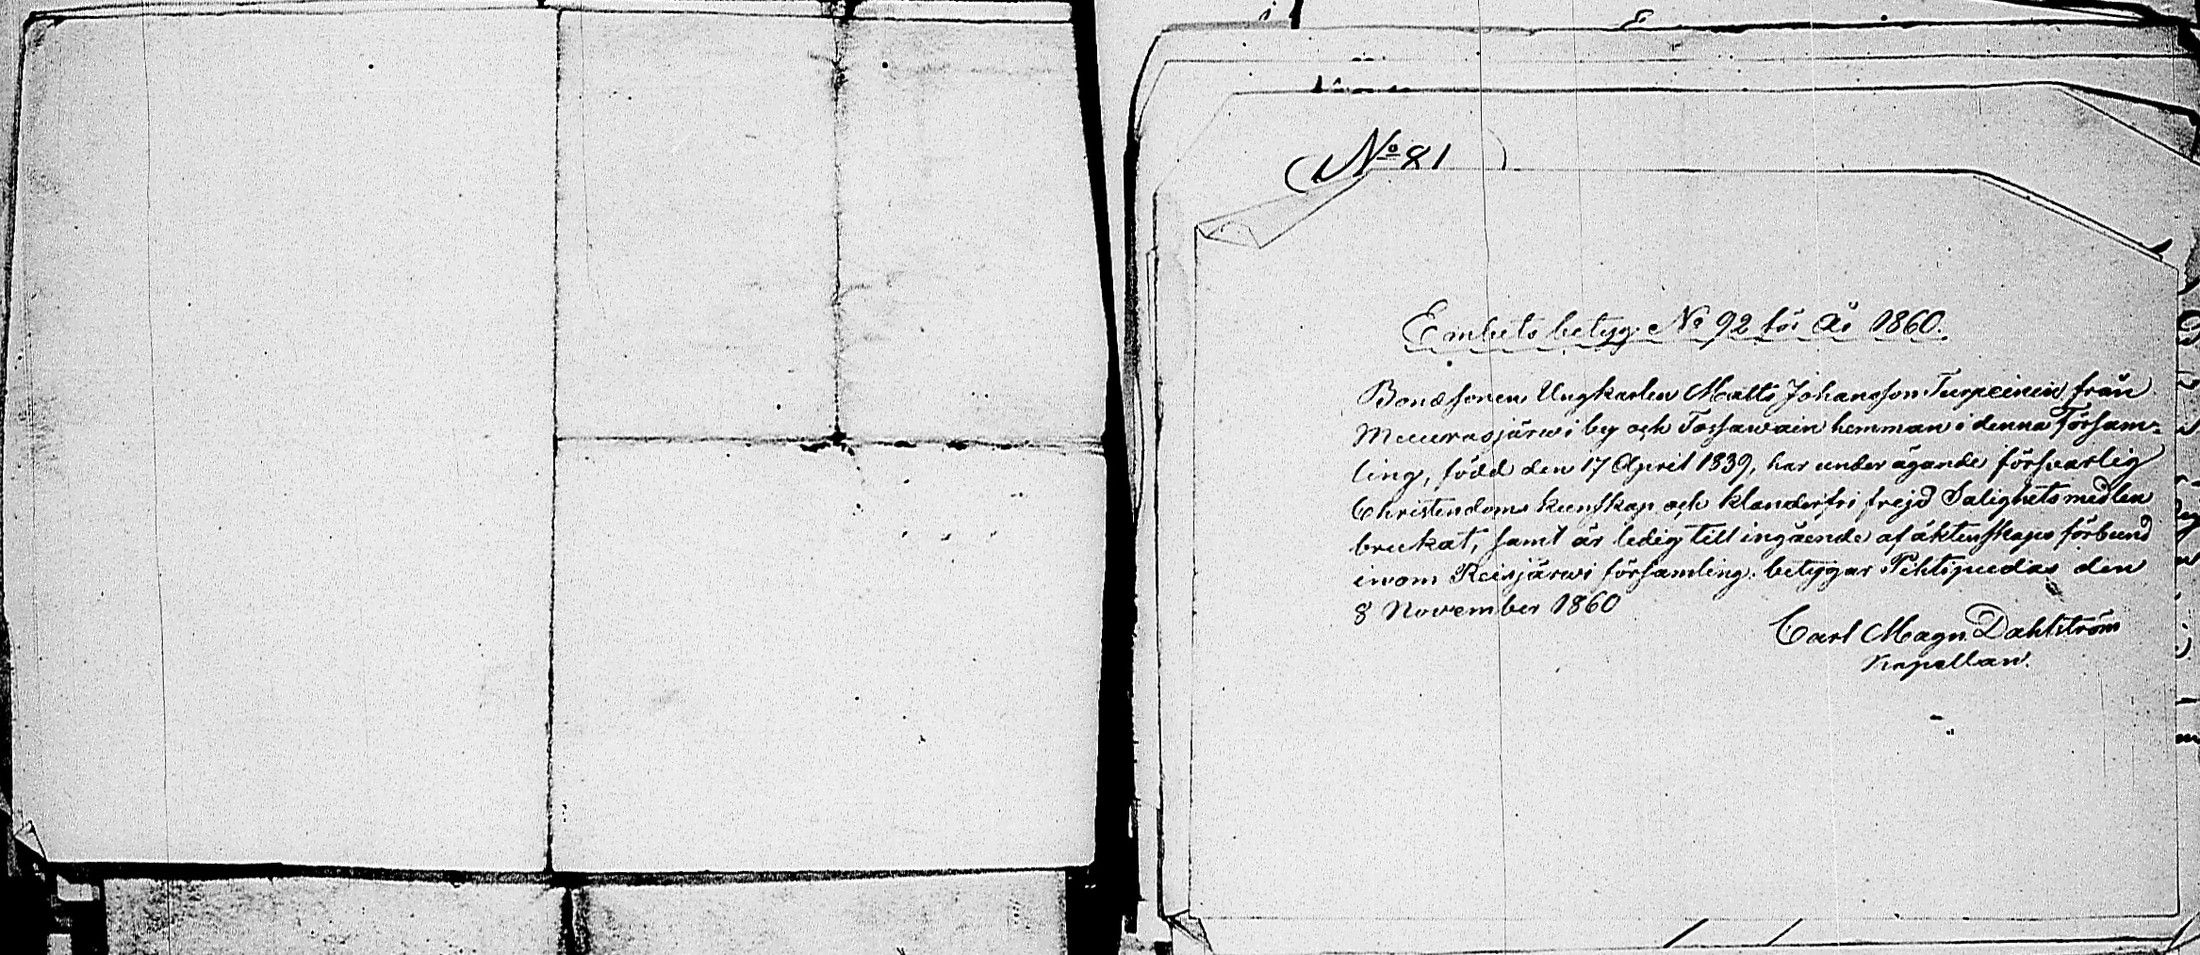 No 81
Embets betyg No 92 för År 1860.
Bondesonen Ungkarlen Matts Johansson Turpeinen från
Muurasjärwi by och Tossawain hemman i denna Försam-
ling, född den 17 April 1839, har under ägande försvarlig
Christendoms kunskap och klanderfri frejd Salighetsmedlen
brukat, samt är ledig till ingående af äktenskaps förbund
inom Reisjärwi församling. betygar Pihtipudas den
8 November 1860
Carl Magn Dahlström
Kapellan.